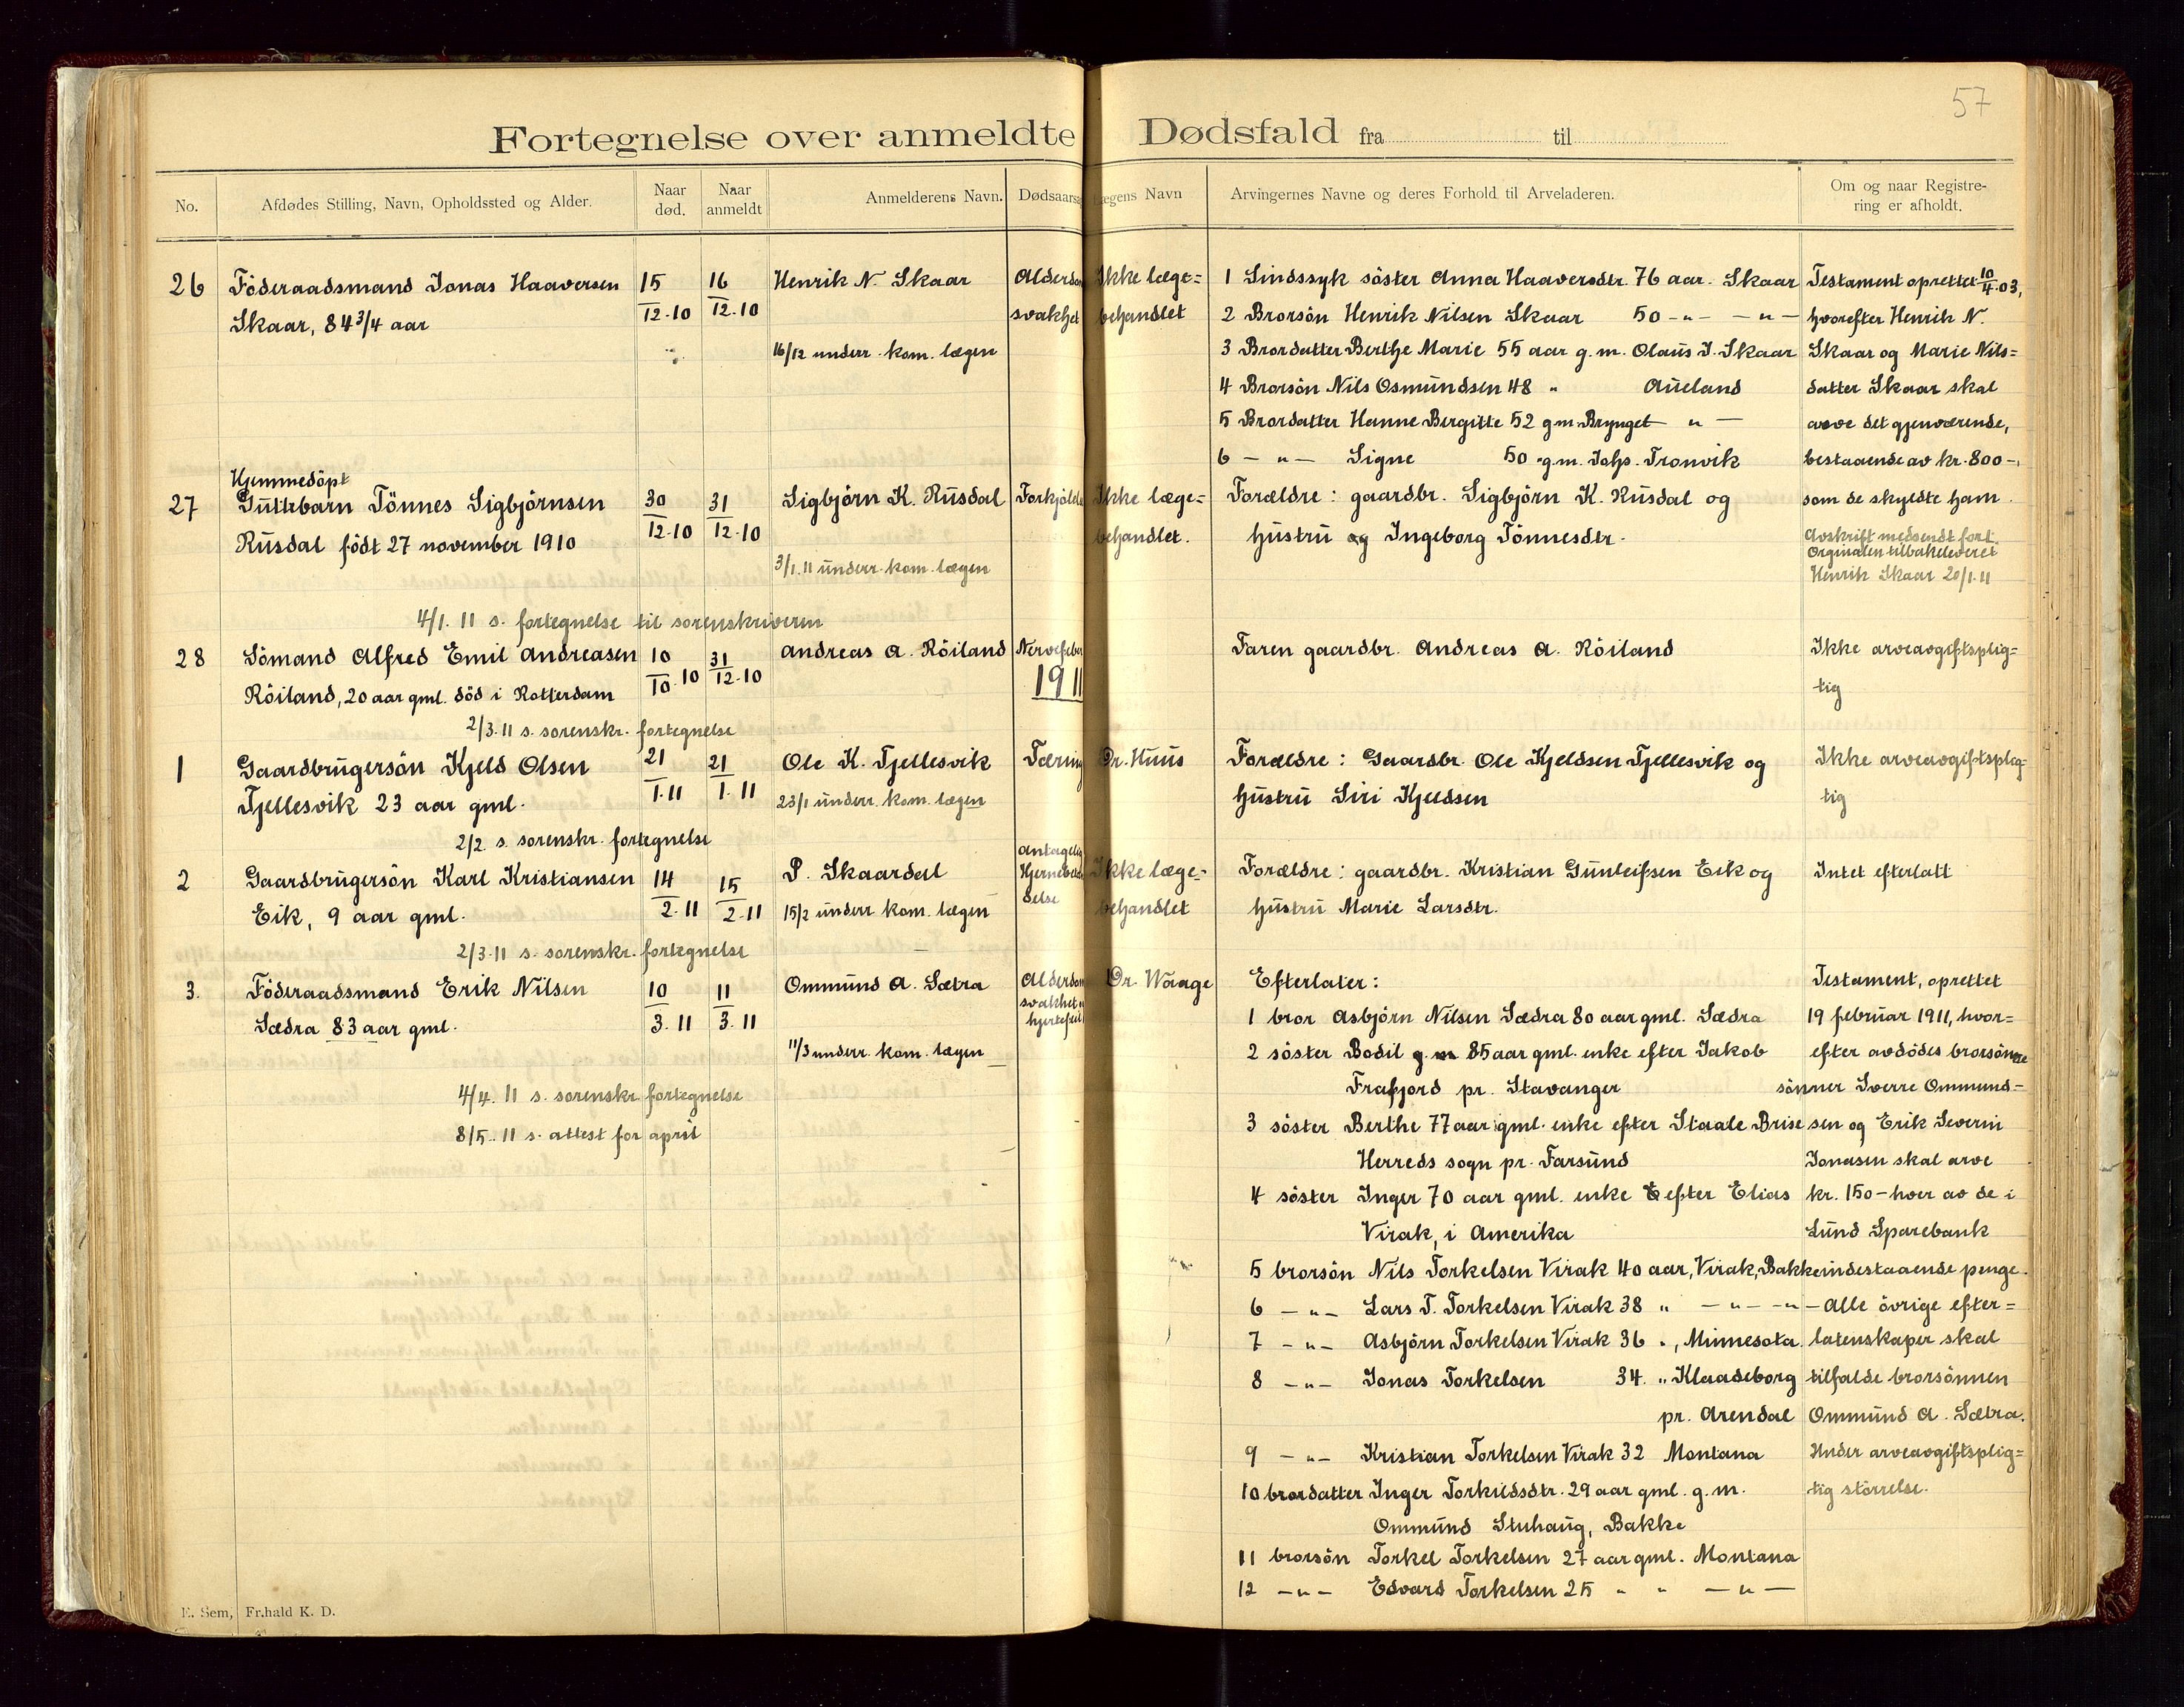 57
Fortegnelse over anmeldte Dødsfald fra til
No.
Afdødes Stilling, Navn, Opholdssted og Alder.
Naar død.
Naar anmeldt
Anmelderens Navn.
Dødsaarsa
ægens Navn
Arvingernes Navne og deres Forhold til Arveladeren.
Om og naar Registre-
ring er afholdt.
26 Föderaadsmand Jonas Haaversen
Skaar, 84 3/4 aar
15/12-10
16/12-10
Henrik N. Skaar
16/12 underr. kom. lægen
Alderdom
svakhet
Ikke læge=
behandlet
1 Sindssyk söster Anna Haaversdtr. 76 aar. Skaar
2 Brorsön Henrik Nilsen Skaar 50 -"- -"-
3 Brordatter Berthe Marie 55 aar g.m. Olaus J. Skaar
4 Brorsön Nils Osmundsen 48 " Aueland
5 Brordatter Hanne Bergitte 52 g m. Brynget " -
6 -"- Signe 50 " g.m. Johs. Tronvik
Testament oprettet 10/4.03,
hvorefter Henrik N.
Skaar og Marie Nils=
datter Skaar skal
arve det gjenværende,
bestaaende av kr. 800-,
som de skyldte ham.
Avskrift medsendt fort.
Orginalen tilbakeleveret
Henrik Skaar 20/1.11
Hjemmedöpt
27 Guttebarn Tönnes Sigbjörnsen
Rusdal födt 27 november 1910
30/12-10
31/12-10
Sigbjörn K. Rusdal
3/1.11 underr. kom. lægen
Forkjölelse
Ikke læge=
behandlet.
Forældre: gaardbr. Sigbjörn K. Rusdal og
hustru og Ingeborg Tönnesdtr.
4/1. 11 s. fortegnelse til sorenskriveren
28 Sömand Alfred Emil Andreasen
Röiland, 20 aar gml. död i Rotterdam
10/10.10
31/12-10
Andreas A. Röiland
Nervefeber
1911
Faren gaardbr. Andreas A. Röiland
Ikke arveavgiftsplig=
tig
2/3.11 s. sorenskr. fortegnelse
1 Gaardbrugersön Kjeld Olsen
Tjellesvik 23 aar gml.
21/1.11
21/1.11
Ole K. Tjellesvik
23/1 underr. kom. lægen
Tæring
Dr. Huus
Forældre: Gaardbr. Ole Kjeldsen Tjellesvik og
hustru Siri Kjeldsen
Ikke arveavgiftsplig-
tig
2/2. s. sorenskr. fortegnelse
2 Gaardbrugersön Karl Kristiansen
Eik, 9 aar gml.
14/2.11
15/2.11
P. Skaardal
15/2 underr kom. lægen
antagelig
Hjernebetæn
delse
Ikke læge-
behandlet
Forældre: gaardbr. Kristian Gunleifsen Eik og
hustru Marie Larsdtr.
Intet efterlatt
2/3.11 s. sorenskr. fortegnelse
3. Föderaadsmand Erik Nilsen
Sædra 83 aar gml.
10/3.11
11/3.11
Ommund A. Sætra
11/3 underr. kom. lægen
Alderdom
svakhet
hjertefeil
Dr. Waage
4/4. 11 s. sorenskr. fortegnelse
8/5. 11 s. attest for april
Efterlater:
1 bror Asbjörn Nilsen Sædra 80 aar gml. Sædra
2 söster Bodil g. m 85 aar gml. enke efter Jakob
Frafjord pr. Stavanger
3 söster Berthe 77 aar gml. enke efter Staale Brise
Herreds sogn pr. Farsund
4 söster Inger 70 aar gml. enke efter Elias
Virak, i Amerika
5 brorsön Nils Torkelsen Virak 40 aar, Virak, Bakke
6 -"- Lars T. Torkelsen Virak 38 " -"- -"-
7 -"- Asbjörn Torkelsen Virak 36 ", Minnesota.
8 -"- Jonas Torkelsen 34. " Klaadeborg
pr. Arendal
9 -"- Kristian Torkelsen Virak 32 Montana
10 brordatter Inger Torkildsdtr. 29 aar gml. g.m.
Ommund Stuhaug, Bakke
11 brorsön Torkel Torkelsen 27 aar gml. Montana
12 -"- Edvard Torkelsen 25 " " -"-
Testament, oprettet
19 februar 1911, hvor=
efter avdödes brorsönne
sönner Sverre Ommund=
sen og Erik Severin
Jonasen skal arve
kr. 150- hver av de i
Lund Sparebank
indestaaende penge.
- Alle övrige efter=
latenskaper skal
tilfalde brorsönnen
Ommund A. Sætra.
Under arveavgiftsplig=
tig störrelse.
E. Sem, Fr.hald K. D.